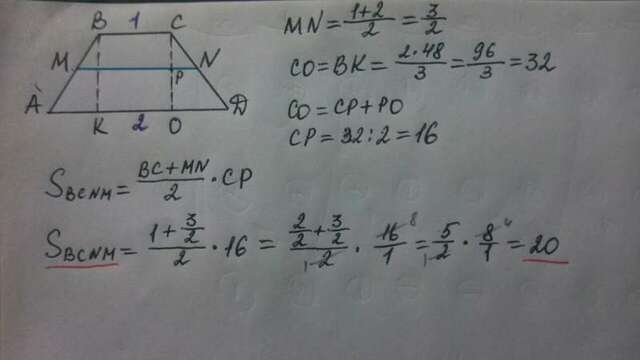 B 1 C
M N
P
A D
K 2 O
MN = (1+2)/2 = 3/2
CO = BK = (2·48)/3 = 96/3 = 32
CO = CP + PO
CP = 32 : 2 = 16
S_BCNM = (BC + MN)/2 · CP
S_BCNM = (1 + 3/2)/2 · 16 = (2/2 + 3/2)/2 · 16/1 = 5/2 · 8/1 = 20